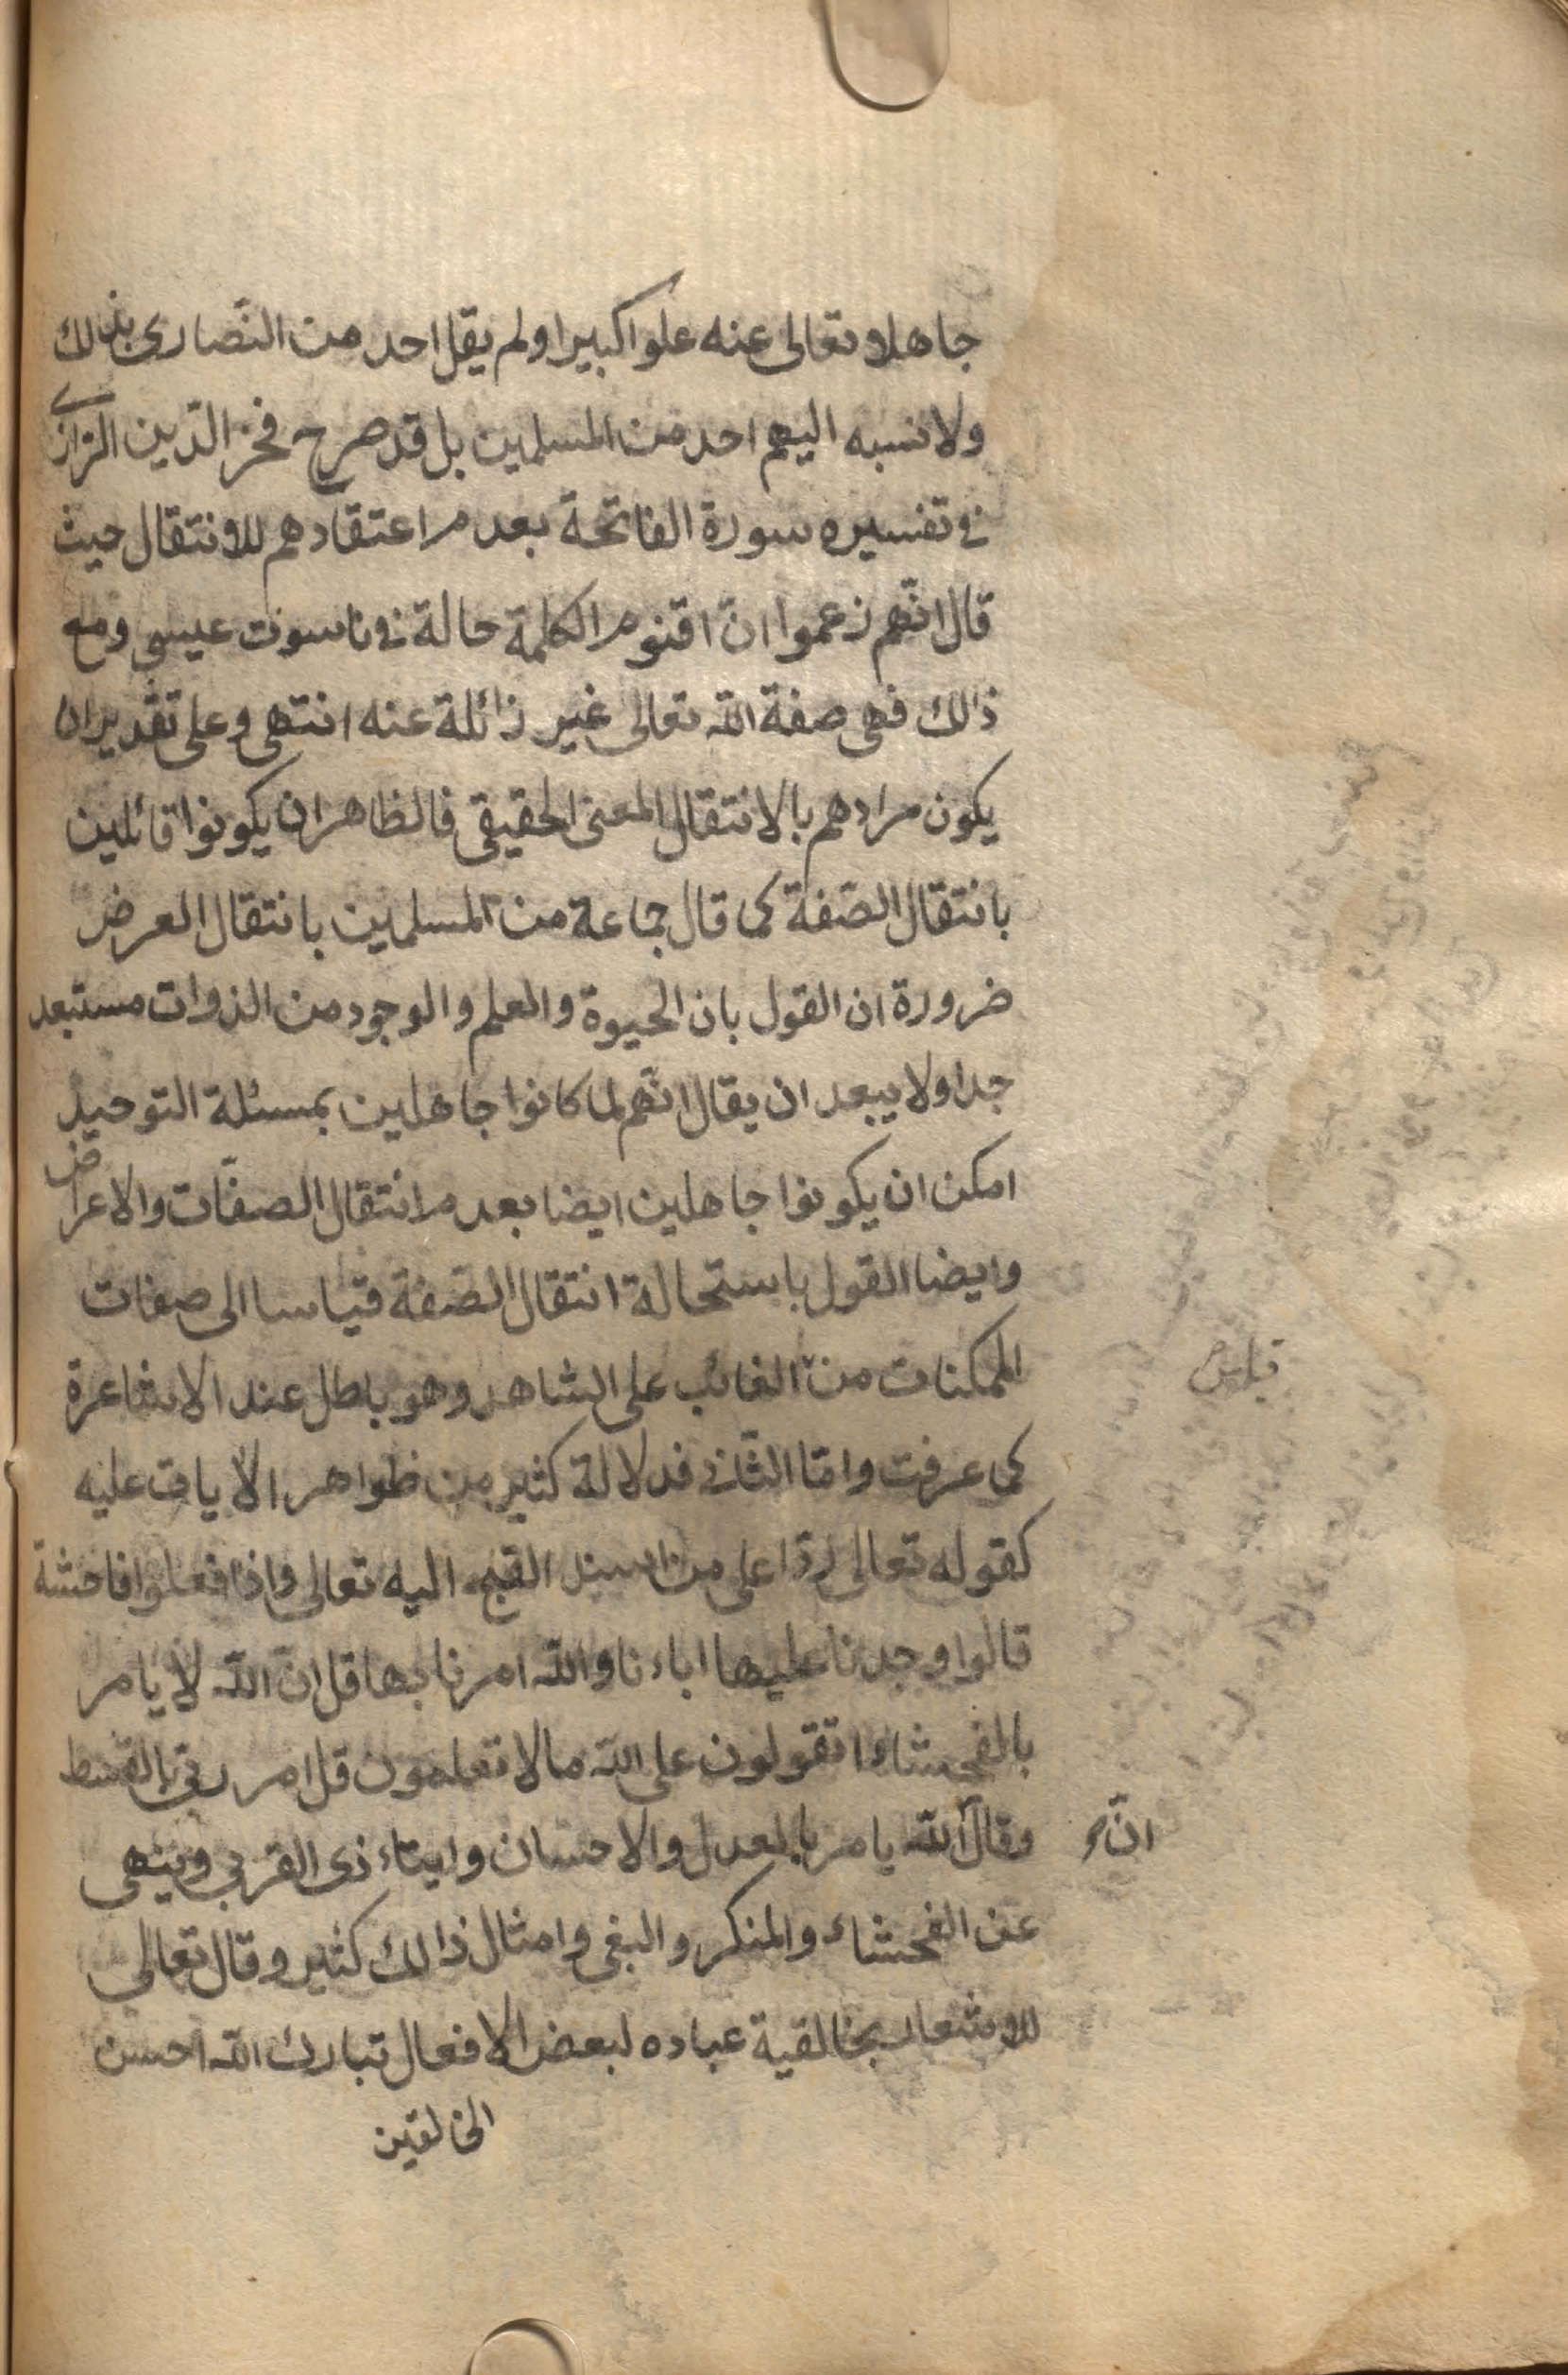 جاهلا وتعالى عنه علوا كبيرا ولم يقل احد من النّصارى بذلك
ولا نسبه اليهم احد من المسلمين بل قد صرح فخر الدّين الرّازى
فى تفسيره سورة الفاتحة بعدم اعتقادهم للانتقال حيث
قال انّهم زعموا انّ اقنوم الكلمة حالة فى ناسوت عيسى ومع
ذالك فهى صفة اللّه تعالى غير زائلة عنه انتهى وعلى تقدير ان
يكون مرادهم بالانتقال المعنى الحقيقى فالظاهر ان يكونوا قائلين
بانتقال الصّفة كما قال جماعة من المسلمين بانتقال العرض
ضرورة ان القول بان الحيوة والعلم والوجود من الذوات مستبعد
جدا ولا يبعد ان يقال انّهم لما كانوا جاهلين بمسئلة التوحيد
امكن ان يكونوا جاهلين ايضا بعدم انتقال الصفّات والاعراض
وايضا القول باستحالة انتقال الصّفة قياسا الى صفات
الممكنات من الغائب على الشاهد وهو باطل عند الاشاعرة
قياس
كما عرفت وامّا الثّانى فدلالة كثير من ظواهر الآيات عليه
كقوله تعالى ردّا على من اسند القبح اليه تعالى واذا فعلوا فاحشة
قالوا وجدنا عليها اباءنا واللّه امرنا بها قل انّ اللّه لا يامر
بالفحشاء اتقولون على اللّه مالا تعلمون قل امر ربّى بالقسط
وقال اللّه يامر بالعدل والاحسان وايتاء ذى القربى وينهى
انّ
عن الفحشاء والمنكر والبغى وامثال ذالك كثير وقال تعالى
للاشعار بخالقية عباده لبعض الافعال تبارك اللّه احسن
الخالقين